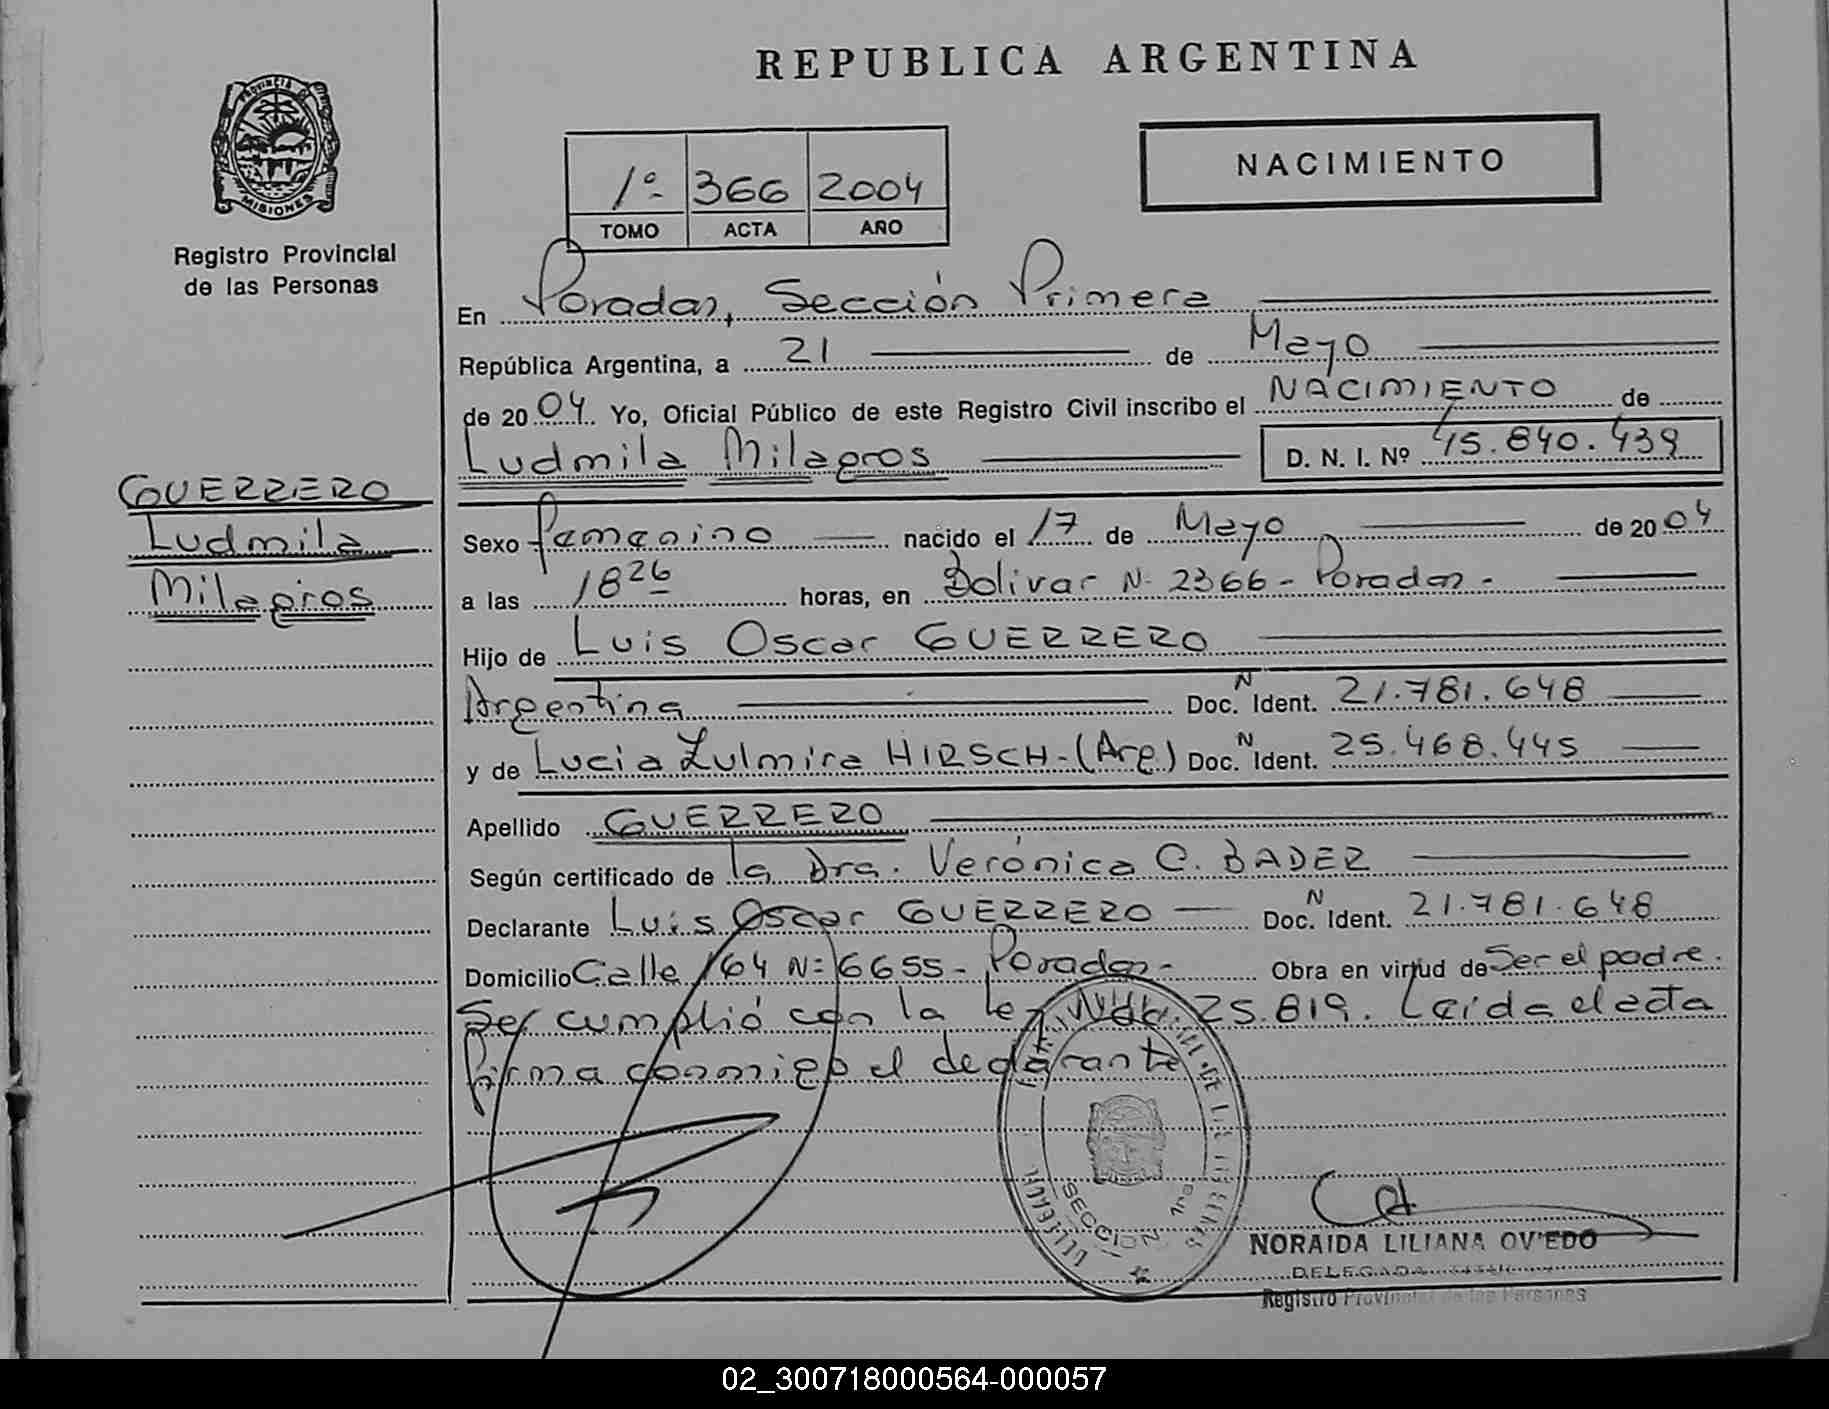 REPUBLICA ARGENTINA
PROVINCIA DE
MISIONES
Registro Provincial
de las Personas
NACIMIENTO
1º 366 2004
TOMO ACTA AÑO
En Posadas, Sección Primera
República Argentina, a 21 de Mayo
de 2004 Yo, Oficial Público de este Registro Civil inscribo el NACIMIENTO de
Ludmila Milagros D. N. I. Nº 45.840.439
GUERRERO
Ludmila
Milagros
Sexo Femenino nacido el 17 de Mayo de 2004
a las 18 26 horas, en Bolivar Nº 2366 - Posadas -
Hijo de Luis Oscar GUERRERO
Argentina Doc. N Ident. 21.781.648
y de Lucia Zulmira HIRSCH - (Arg.) Doc. N Ident. 25.468.445
Apellido GUERRERO
Según certificado de la Dra. Verónica C. BADER
Declarante Luis Oscar GUERRERO Doc. N Ident. 21.781.648
Domicilio Calle 164 Nº 6655 - Posadas - Obra en virtud de Ser el padre.
Se cumplió con la ley 25.819. Leída el acta
firma conmigo el declarante
SECCION 1ra
NORAIDA LILIANA OVIEDO
DELEGADA
Registro Provincial de las Personas
02_300718000564-000057